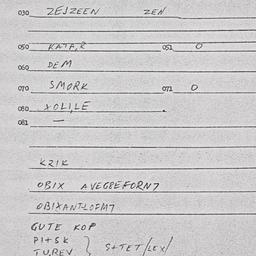 030 ZEJZEEN ZEN
050 KATA,R 051 O
060 DEM
070 SMORK 071 O
080 XOLILE
081 —
KRIK
OBIX AVEGBEFORN7
OBIXANTLOFM7
GUTE KOP
PI+SK
TUREV } S+TET/LEX/